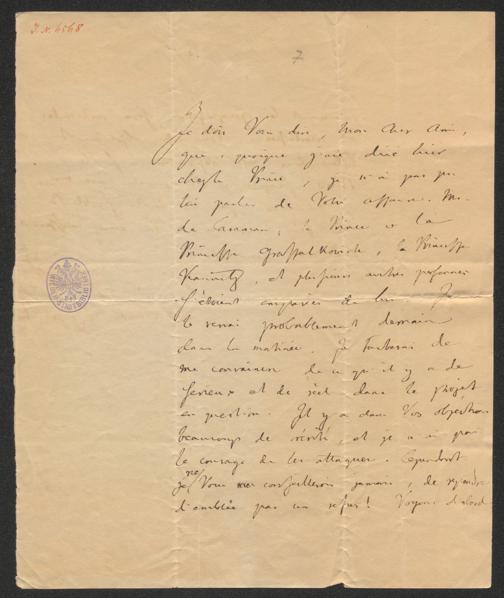 I. N. 6568
7
Je dois Vous dire, Mon cher Ami,
que, quoique j'aie diné hier
chez le Prince, je n'ai pas pu
lui parler de Votre affaire. Mr
de le Prince et la
Princesse Grassalkovich, la Princesse
et plusieurs autres personnes
s'étoient emparées de lui. Je
le verrai probablement demain
dans la matinée. Je tacherai de
me convaincre de ce qu'il y a de
serieux et de réel dans le projet
en question. Il y a dans Vos objections
beaucoup de vérité, et je n'ai pas
le courage de les attaquer. Cependant
je ne Vous conseillerois jamais, de répondre
d'emblée par un refus! Voyons d'abord